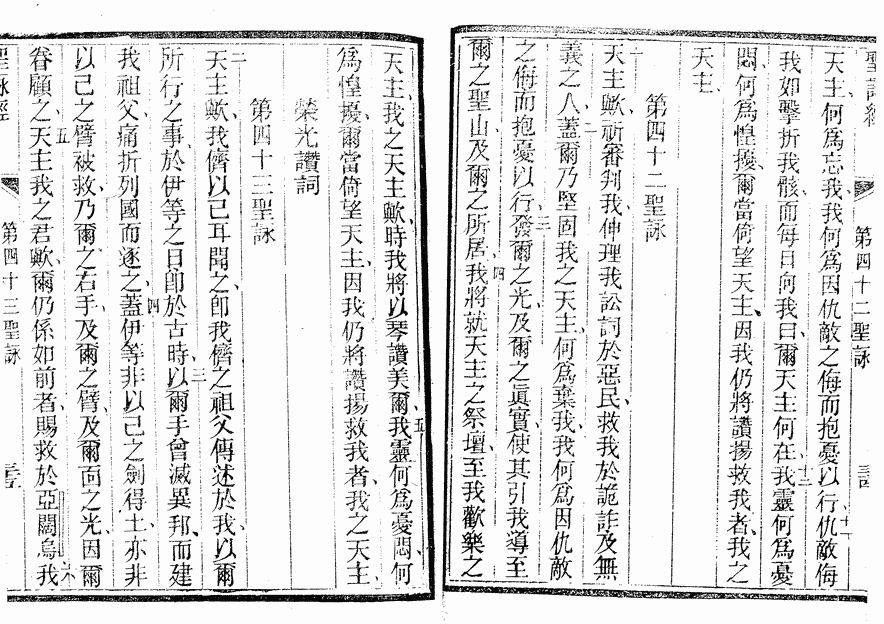 聖詠經
第四十二聖詠
三四
天主、何爲忘我、我何爲因仇敵之侮而抱憂以行、仇敵侮
十一
我如擊折我骸、而每日向我曰、爾天主何在、我靈何爲憂
十二
悶、何爲惶擾、爾當倚望天主、因我仍將讚揚救我者、我之
天主、
第四十二聖詠
一
天主歟、祈審判我、伸理我訟詞於惡民、救我於詭詐及無
義之人、蓋爾乃堅固我之天主、何爲棄我、我何爲因仇敵
二
之侮而抱憂以行、發爾之光、及爾之眞實、使其引我導至
三
爾之聖山、及爾之所居、我將就天主之祭壇、至我歡樂之
四
天主、我之天主歟、時我將以琴讚美爾、我靈何爲憂悶、何
五
爲惶擾、爾當倚望天主、因我仍將讚揚救我者、我之天主、
榮光讚詞
第四十三聖詠
二
天主歟、我儕以己耳聞之、卽我儕之祖父傳述於我、以爾
所行之事、於伊等之日、卽於古時、以爾手曾滅異邦、而建
三
我祖父、痛折列國而逐之、蓋伊等非以己之劍得土、亦非
四
以己之臂被救、乃爾之右手、及爾之臂、及爾面之光、因爾
眷顧之、天主我之君歟、爾仍係如前者、賜救於亞闊烏、我
五
六
聖詠經
第四十三聖詠
三五